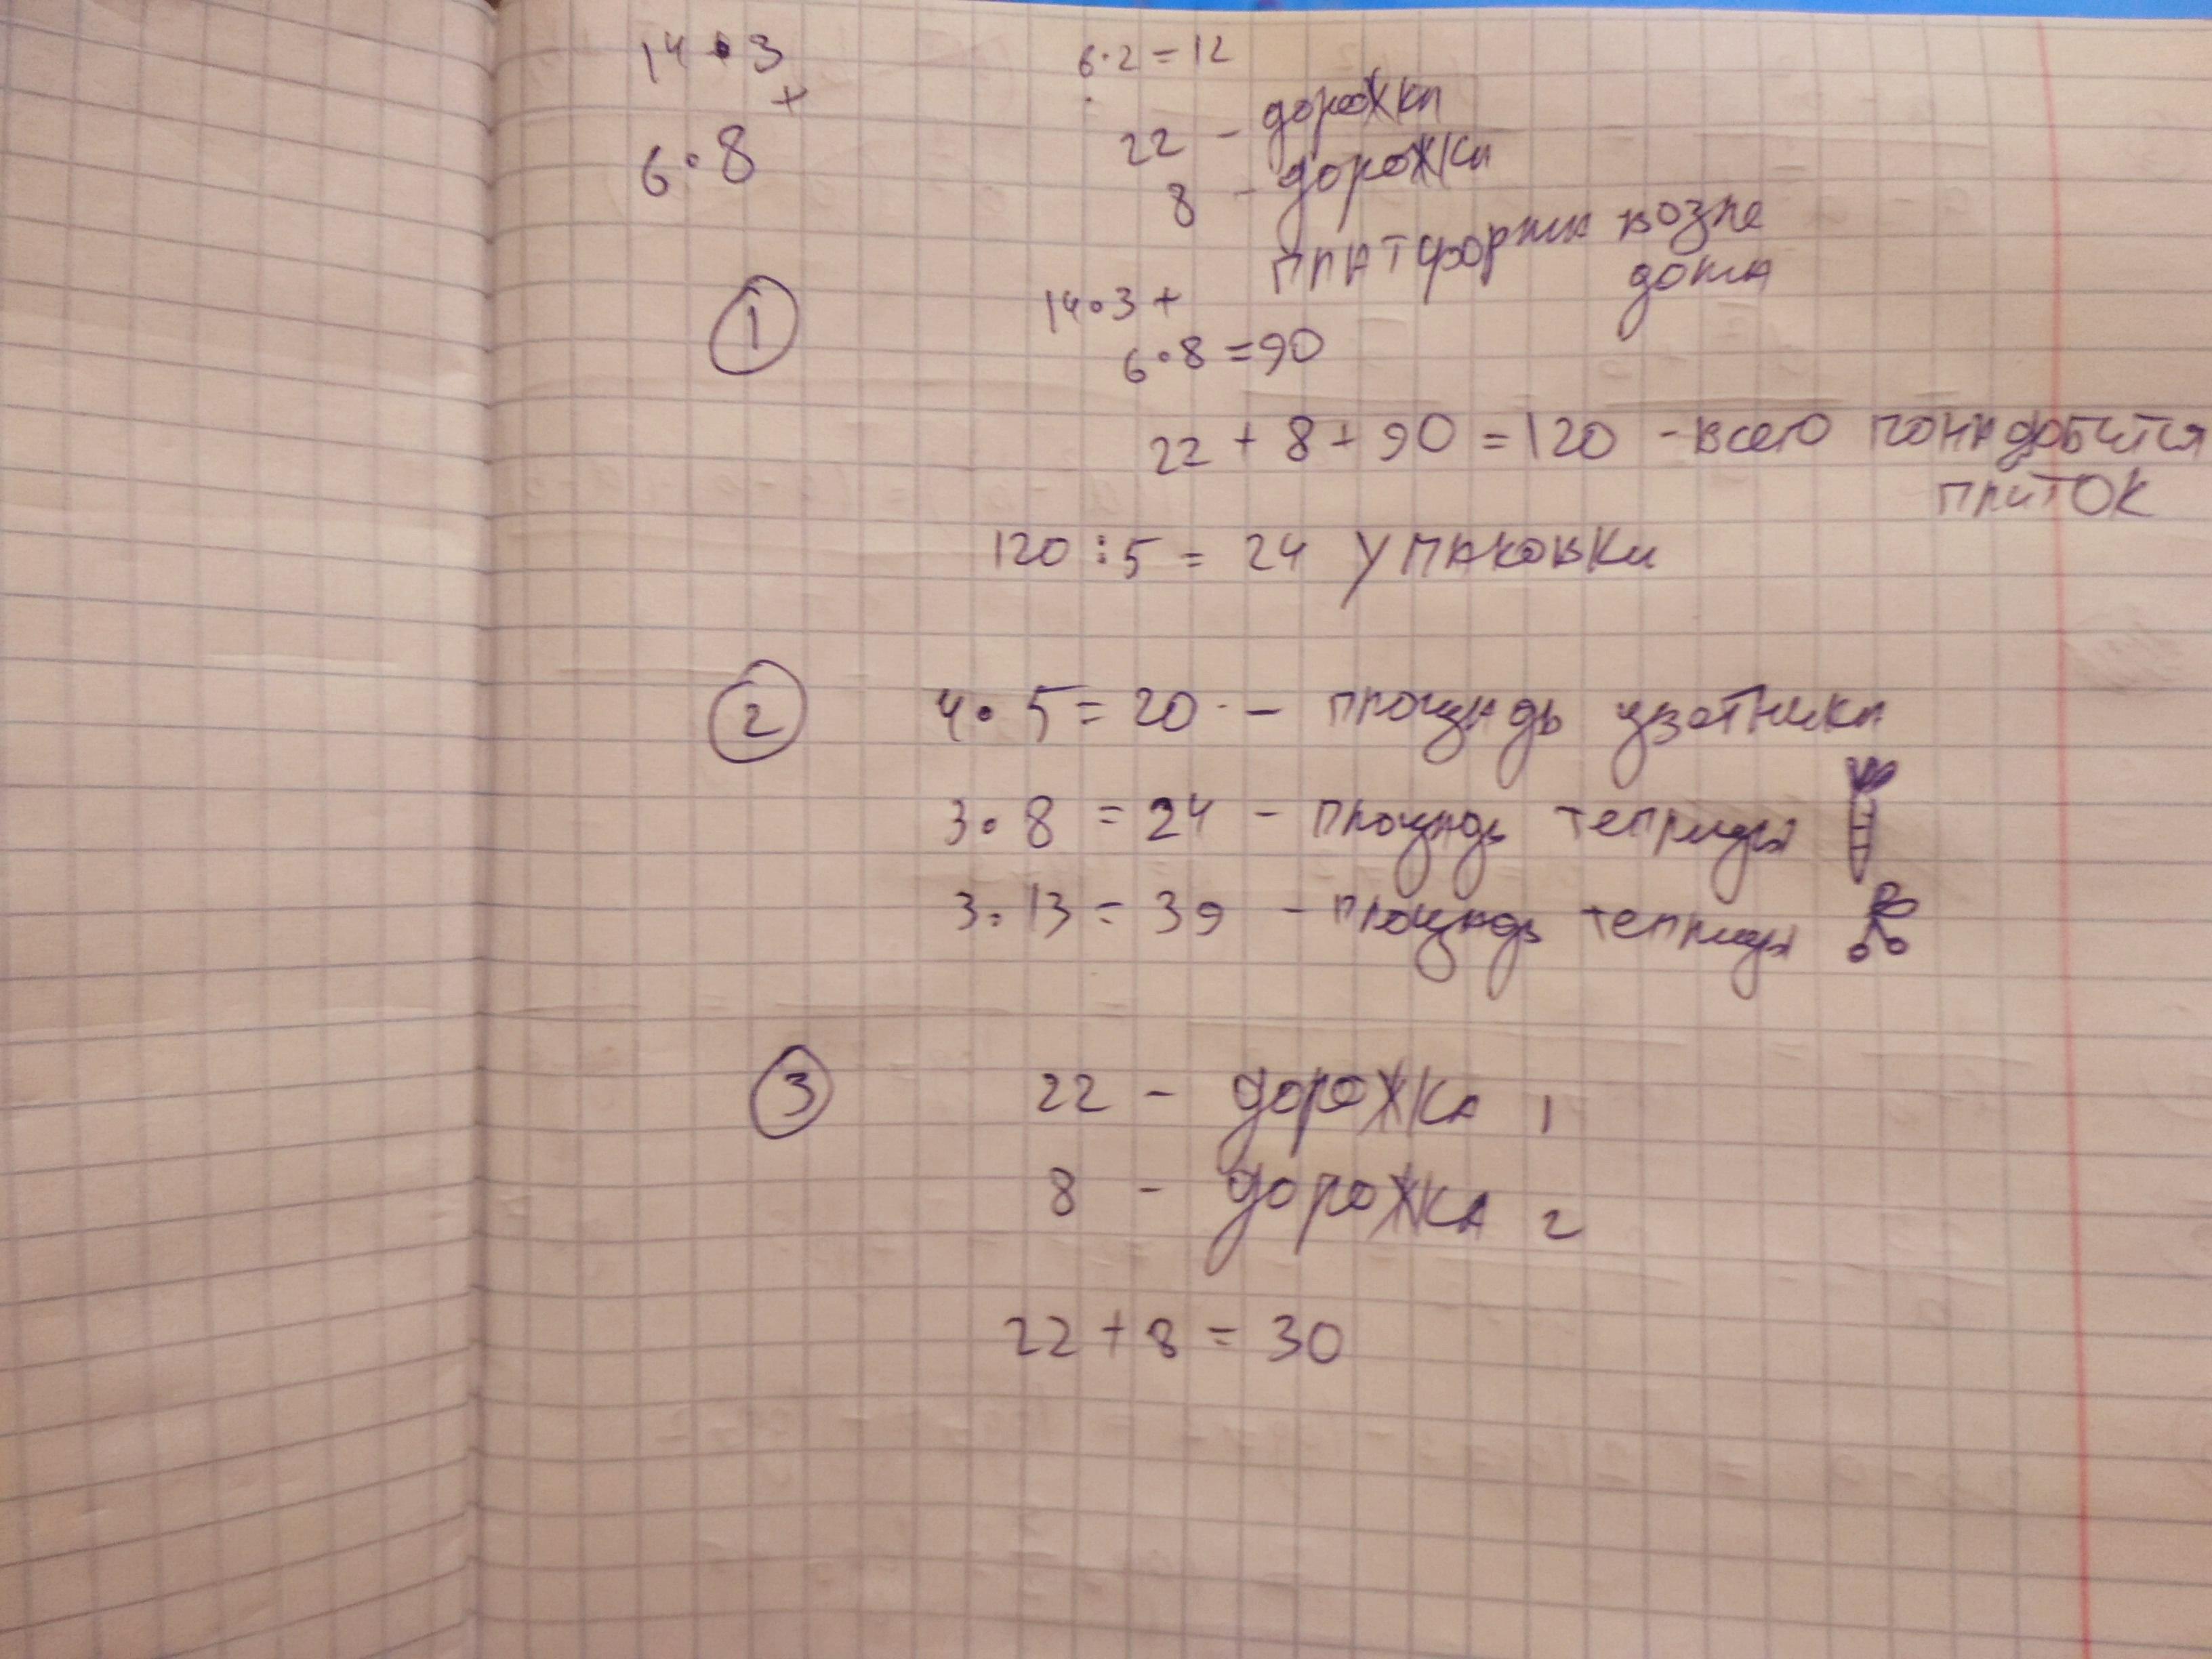 14 • 3
+
6 • 8
6 • 2 = 12
22 - дорожка
8 - дорожка
платформа возле
дома
①
14 • 3 +
6 • 8 = 90
22 + 8 + 90 = 120 - всего понадобится
плиток
120 : 5 = 24 упаковки
②
4 • 5 = 20 - площадь цветника
3 • 8 = 24 - площадь теплицы
3 • 13 = 39 - площадь теплицы
③
22 - дорожка 1
8 - дорожка 2
22 + 8 = 30